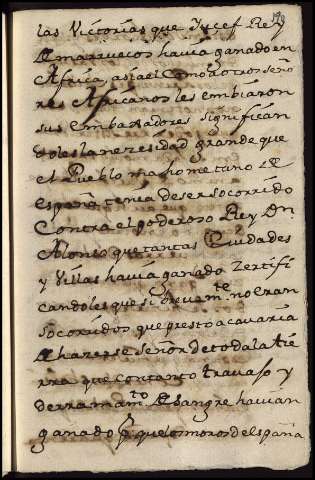 las Victorias que Juçef Rey
de marruecos havia ganado en
Africa, asi a el Como a otros seño
res Africanos les embiaron
sus embaxadores significan
doles la nezesidad grande que
el Pueblo mahometano de
españa tenia de ser socorrido
Contra el poderoso Rey Dn
Alonso que tantas Ciudades
y Villas havia ganado Zertifi
candoles que si brevamte no eran
socorridos que presto acavaria
de hazerse señor de toda la tie
rra que con tanto travajo y
derramamto de sangre havian
ganado pr que los moros de españa